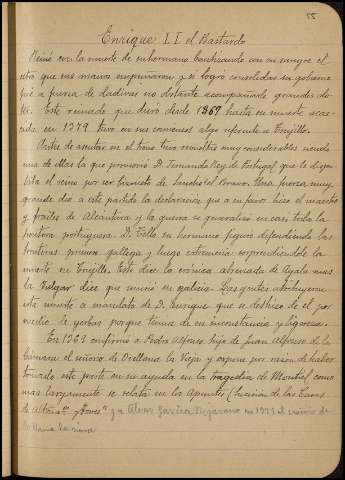 55
Enrique II el Bastardo
Reinó con la muerte de su hermano bautizando con su sangre el
cetro que sus manos empuñaron y si logró consolidar su gobierno
fué a fuerza de dadivas no obstante acompañarle grandes do-
tes. Este reinado que duró desde 1369 hasta su muerte acae-
cida en 1379 tuvo en sus comienzos algo referente a Trujillo.
Antes de sentar en el trono tuvo revueltas muy considerables siendo
una de ellas la que promovió D. Fernando Rey de Portugal que le dispu-
taba el reino por ser biznieto de Sancho el Bravo. Una fuerza muy
grande dio a este partido la declaracion que a su favor hizo el maestre
y frailes de Alcantara y la guerra se generalizó en casi toda la
frontera portuguesa. D. Tello su hermano figuró defendiendo las
fronteras primero gallega y luego extremeña sorprendiendole la
muerte en Trujillo. Esto dice la crónica abreviada de Ayala mas
la Vulgar dice que murió en Galicia. Las gentes atribuyeron
esta muerte a mandato de D. Enrique que se deshizo de el por
medio de yerbas porque temia de su inconstancia y ligereza.
En 1369 confirmó a Pedro Alfonso hijo de Juan Alfonso de la
Camara el señorio de Orellana la Vieja y expone por razón de haber
tomado este parte en su ayuda en la tragedia de Montiel como
mas largamente se relata en los Apuntes (Sucesión de las Casas
de Altamª y a Alvar Garcia Bejarano en 1375 el señorio de
Orellana la nueva